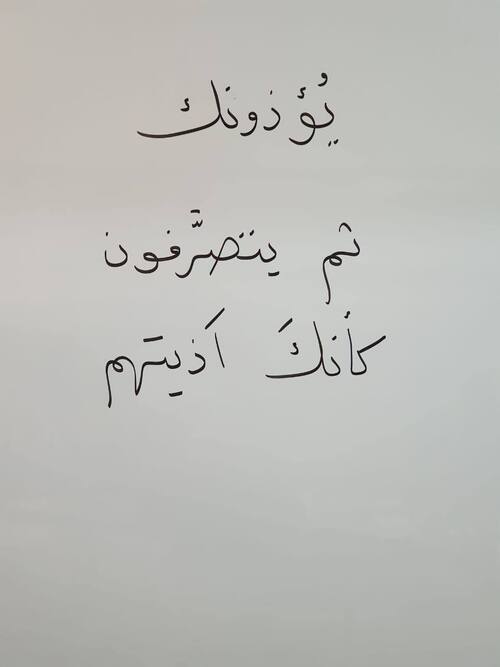 يُؤذونك
ثم يتصرَّفون
كأنكَ آذيتهم